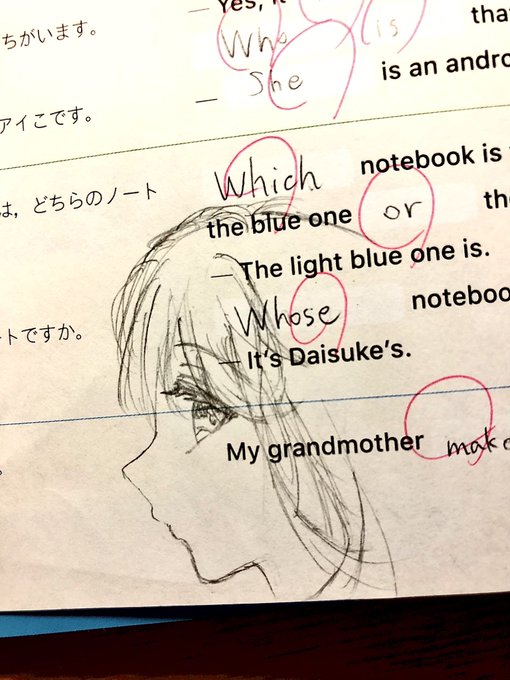 Yes, it
ちがいます。 Who is tha
She is an andro
アイこです。
Which notebook is
は，どちらのノート the blue one or th
The light blue one is.
Whose noteboo
トですか。 It's Daisuke's.
My grandmother make